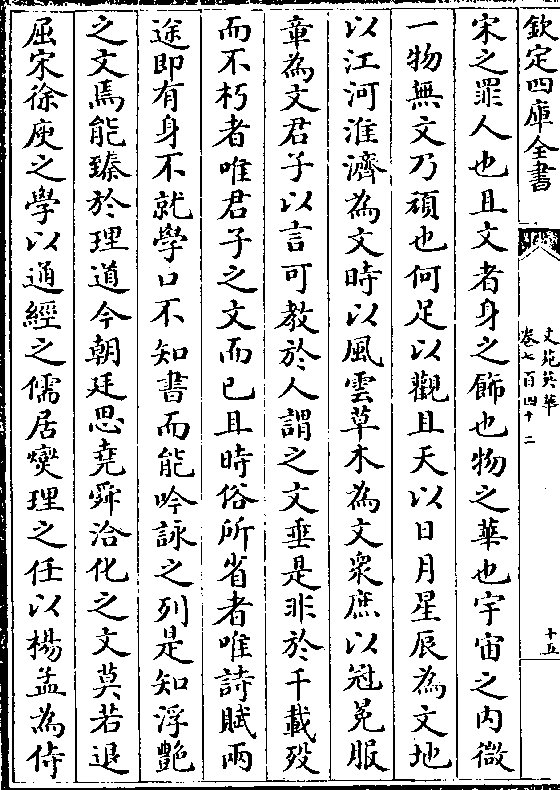 欽定四庫全書
文苑英華
卷七百四十二
十五
宋之罪人也且文者身之飾也物之華也宇宙之內微
一物無文乃頑也何足以觀且天以日月星辰為文地
以江河淮濟為文時以風雲草木為文衆庶以冠冕服
章為文君子以言可教於人謂之文垂是非於千載殁
而不朽者唯君子之文而已且時俗所省者唯詩賦兩
途即有身不就學口不知書而能吟詠之列是知浮艷
之文焉能臻於理道今朝廷思堯舜洽化之文莫若退
屈宋徐庾之學以通經之儒居燮理之任以楊孟為侍